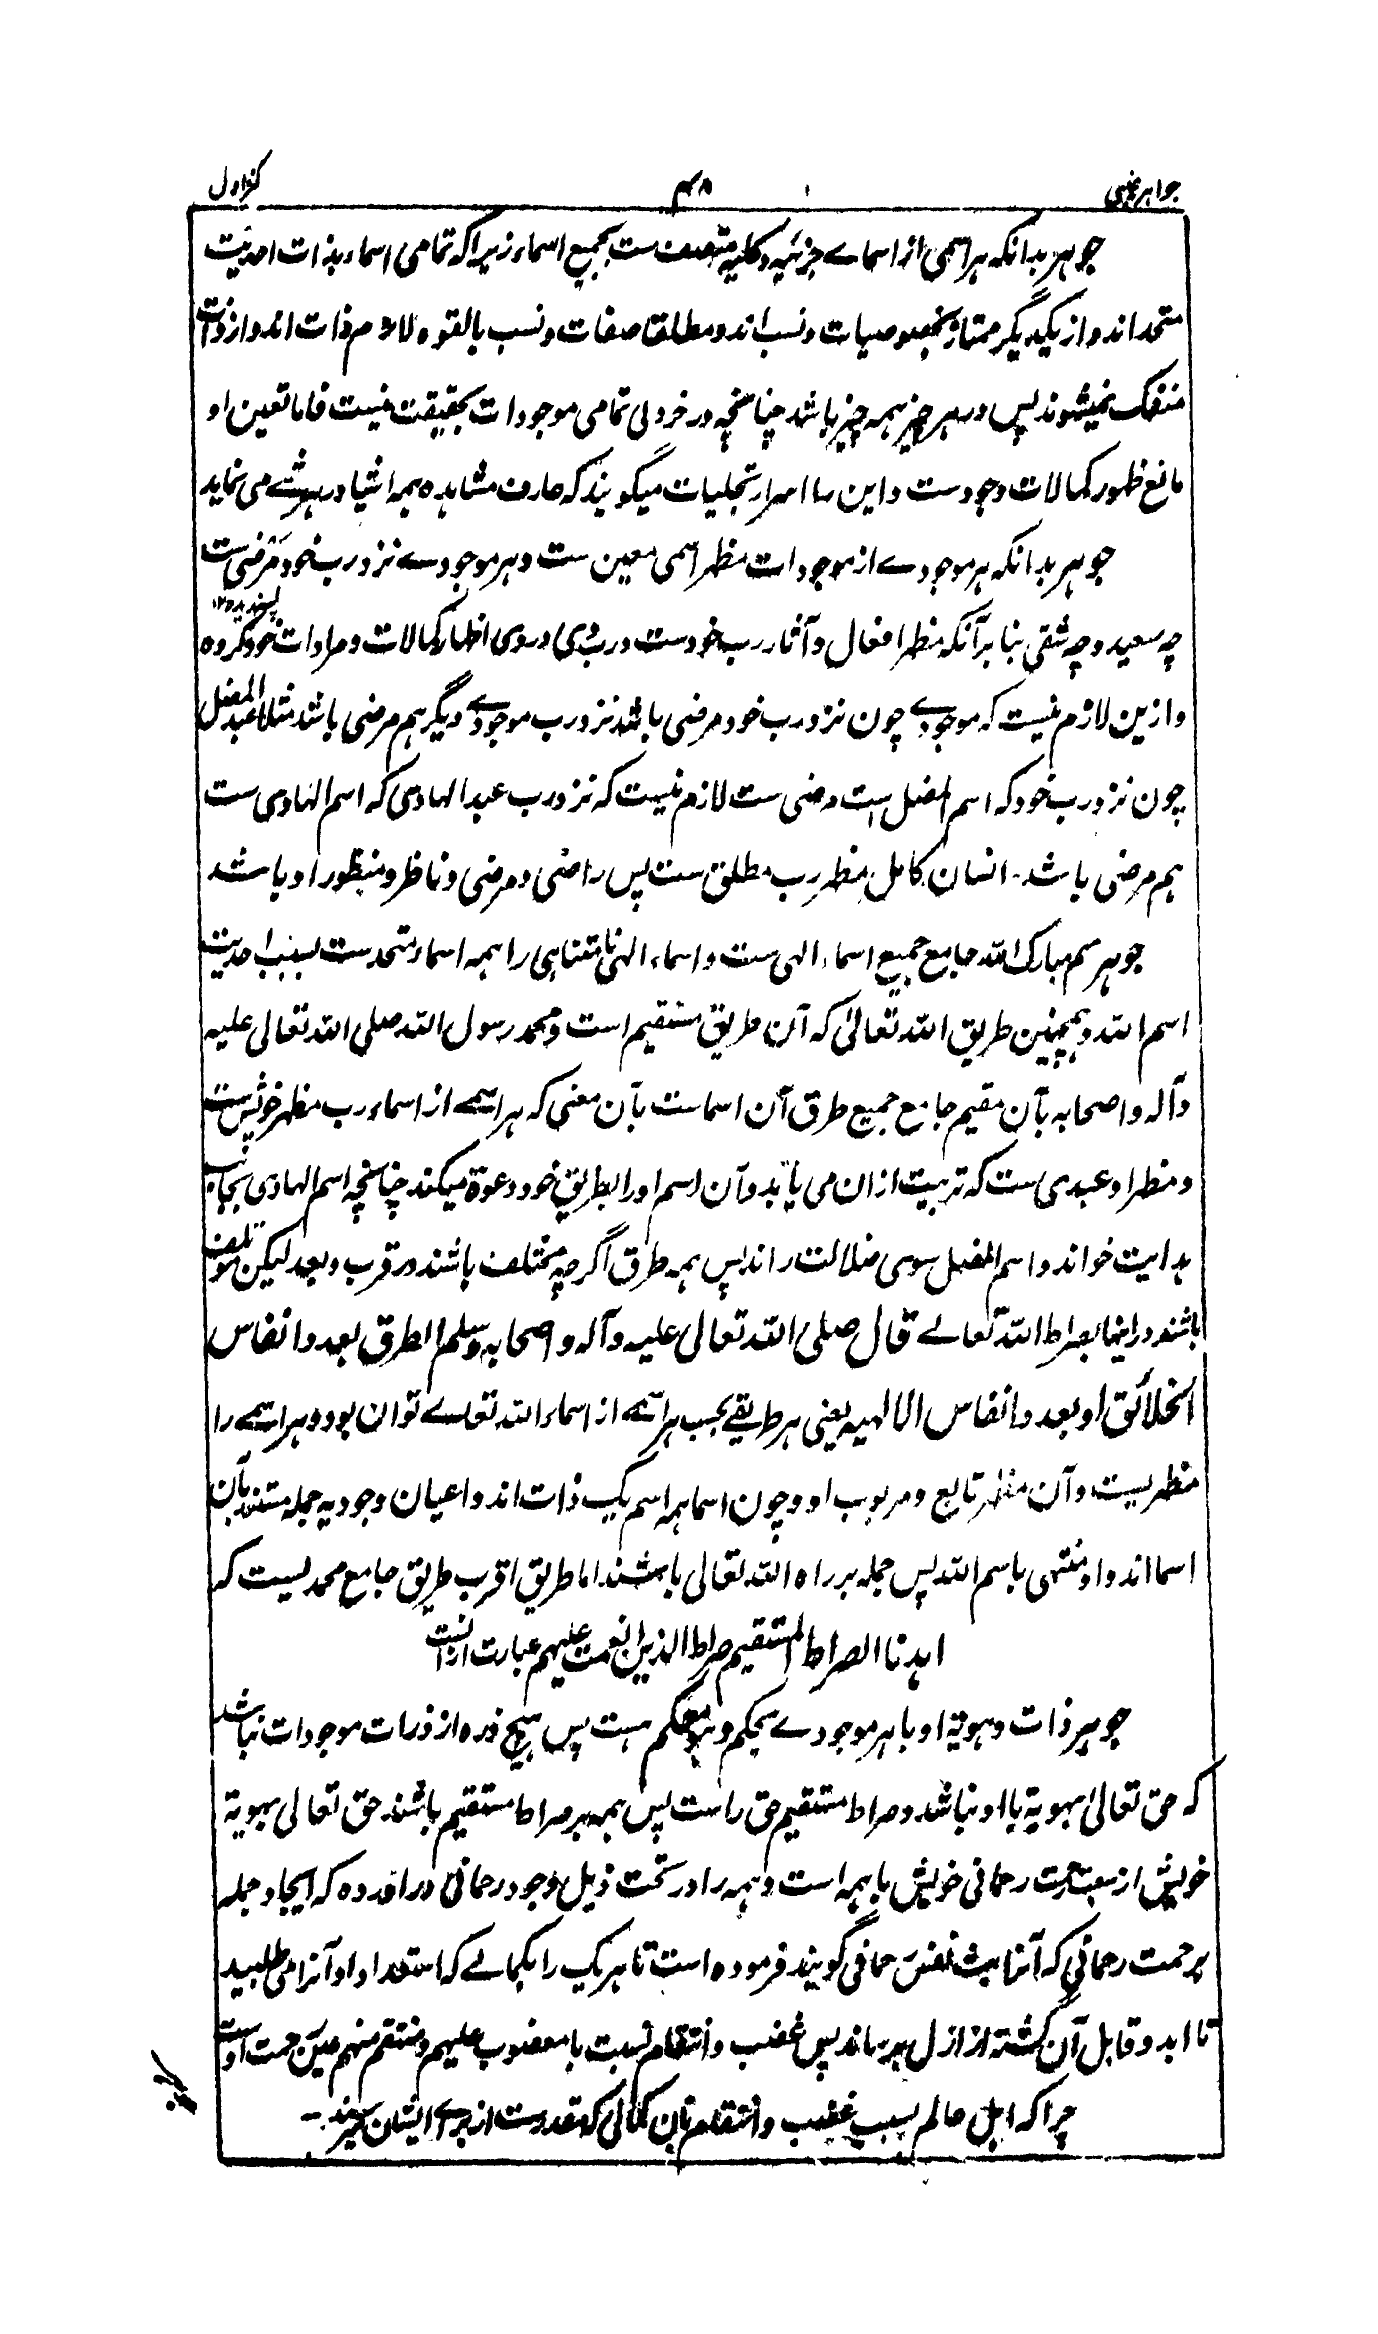 جواهر غیبی ۴۸ کنز اول
جوهر بدانکه هر اسمی از اسماے جزئیه و کلیه متصف ست بجمیع اسماء زیرا که تمامی اسماء بذات احدیت
متحد اند و از یکدیگر ممتاز بخصوصیات و نسب اند و مطلقا صفات و نسب بالقوه لازم ذات اند و از ذات
منفک نمیشوند پس در هر چیز همه چیز باشد چنانچه در خردلی تمامی موجودات بحقیقت نیست فاما تعین او
مانع ظهور کمالات وجودست و این را اسرار تجلیات میگویند که عارف مشاهده همه اشیا در هر شے می نماید
جوهر بدانکه هر موجودے از موجودات مظهر اسمی معین ست و هر موجودے نزد رب خود مرضی ست
پسندیده ۱۲
چه سعید و چه شقی بنا بر آنکه مظهر افعال و آثار رب خودست و رب وی در وی اظهار کمالات و مرادات خود کرده
و ازین لازم نیست که موجودے چون نزد رب خود مرضی باشد نزد رب موجودے دیگر هم مرضی باشد مثلا عبد المضل
چون نزد رب خود که اسم المضل است مرضی ست لازم نیست که نزد رب عبد الهادی که اسم الهادی ست
هم مرضی باشد۔ انسان کامل مظهر رب مطلق ست پس راضی و مرضی و ناظر و منظور او باشد
جوهر اسم مبارک الله جامع جمیع اسماء الهی ست و اسماء الهی نامتناهی را همه اسماء متحدست بسبب احدیت
اسم الله و همچنین طریق الله تعالی که آن طریق مستقیم است و محمد رسول الله صلی الله تعالی علیه
و آله و اصحابه بآن مقیم جامع جمیع طرق آن اسماست بآن معنی که هر اسمے از اسماء رب مظهر خویش ست
و مظهر او عبدی ست که تربیت ازان می یابد و آن اسم او را بطریق خود دعوة میکند چنانچه اسم الهادی بجانب
هدایت خواند و اسم المضل سوی ضلالت راند پس همه طرق اگرچه مختلف باشند در قرب و بعد لیکن موتلف
باشند در اینها بصراط الله تعالے قال صلی الله تعالی علیه و آله و اصحابه وسلم الطرق بعدد انفاس
الخلائق او بعدد انفاس الالهیه یعنی هر طریقے بحسب هر اسمے از اسماء الله تعالے توان بود و هر اسمے را
مظهریست و آن مظهر تابع و مربوب او و چون اسما همه اسم یک ذات اند و اعیان وجودیه جمله مستند بآن
اسما اند و او منتهی باسم الله پس جمله بر راه الله تعالی باشند اما طریق اقرب طریق جامع محمدیست که
اهدنا الصراط المستقیم صراط الذین انعمت علیهم عبارت ازانست
جوهر ذات و هویة او با هر موجودے بحکم و هو معکم هست پس هیچ ذره از ذرات موجودات نباشد
که حق تعالی بهویة با او نباشد و صراط مستقیم حق راست پس همه بر صراط مستقیم باشند حق تعالی بهویة
خویش از سبقت رحمت رحمانی خویش با همه است و همه را در تحت ذیل وجود رحمانی در آورده که ایجاد جمله
برحمت رحمانی که آنرا نفس رحمانی گویند فرموده است تا هر یک را بکمالے که استعداد او آنرا می طلبید
تا ابد و قابل آن گشته از ازل برساند پس غضب و انتقام نسبت با مغضوب علیهم و منتقم منهم عین رحمت اوست
چرا که اهل عالم بسبب غضب و انتقام بآن کمالی که مقدرست از براے ایشان میرسند۔